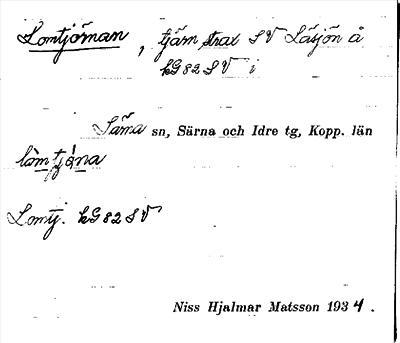 Lomtjärnan, tjärn strax SV Låsjön å
kG 82 SV i
Särna sn, Särna och Idre tg, Kopp. län
lòmtjá̱na
Lomtj. kG 82 SV
Niss Hjalmar Matsson 1934.